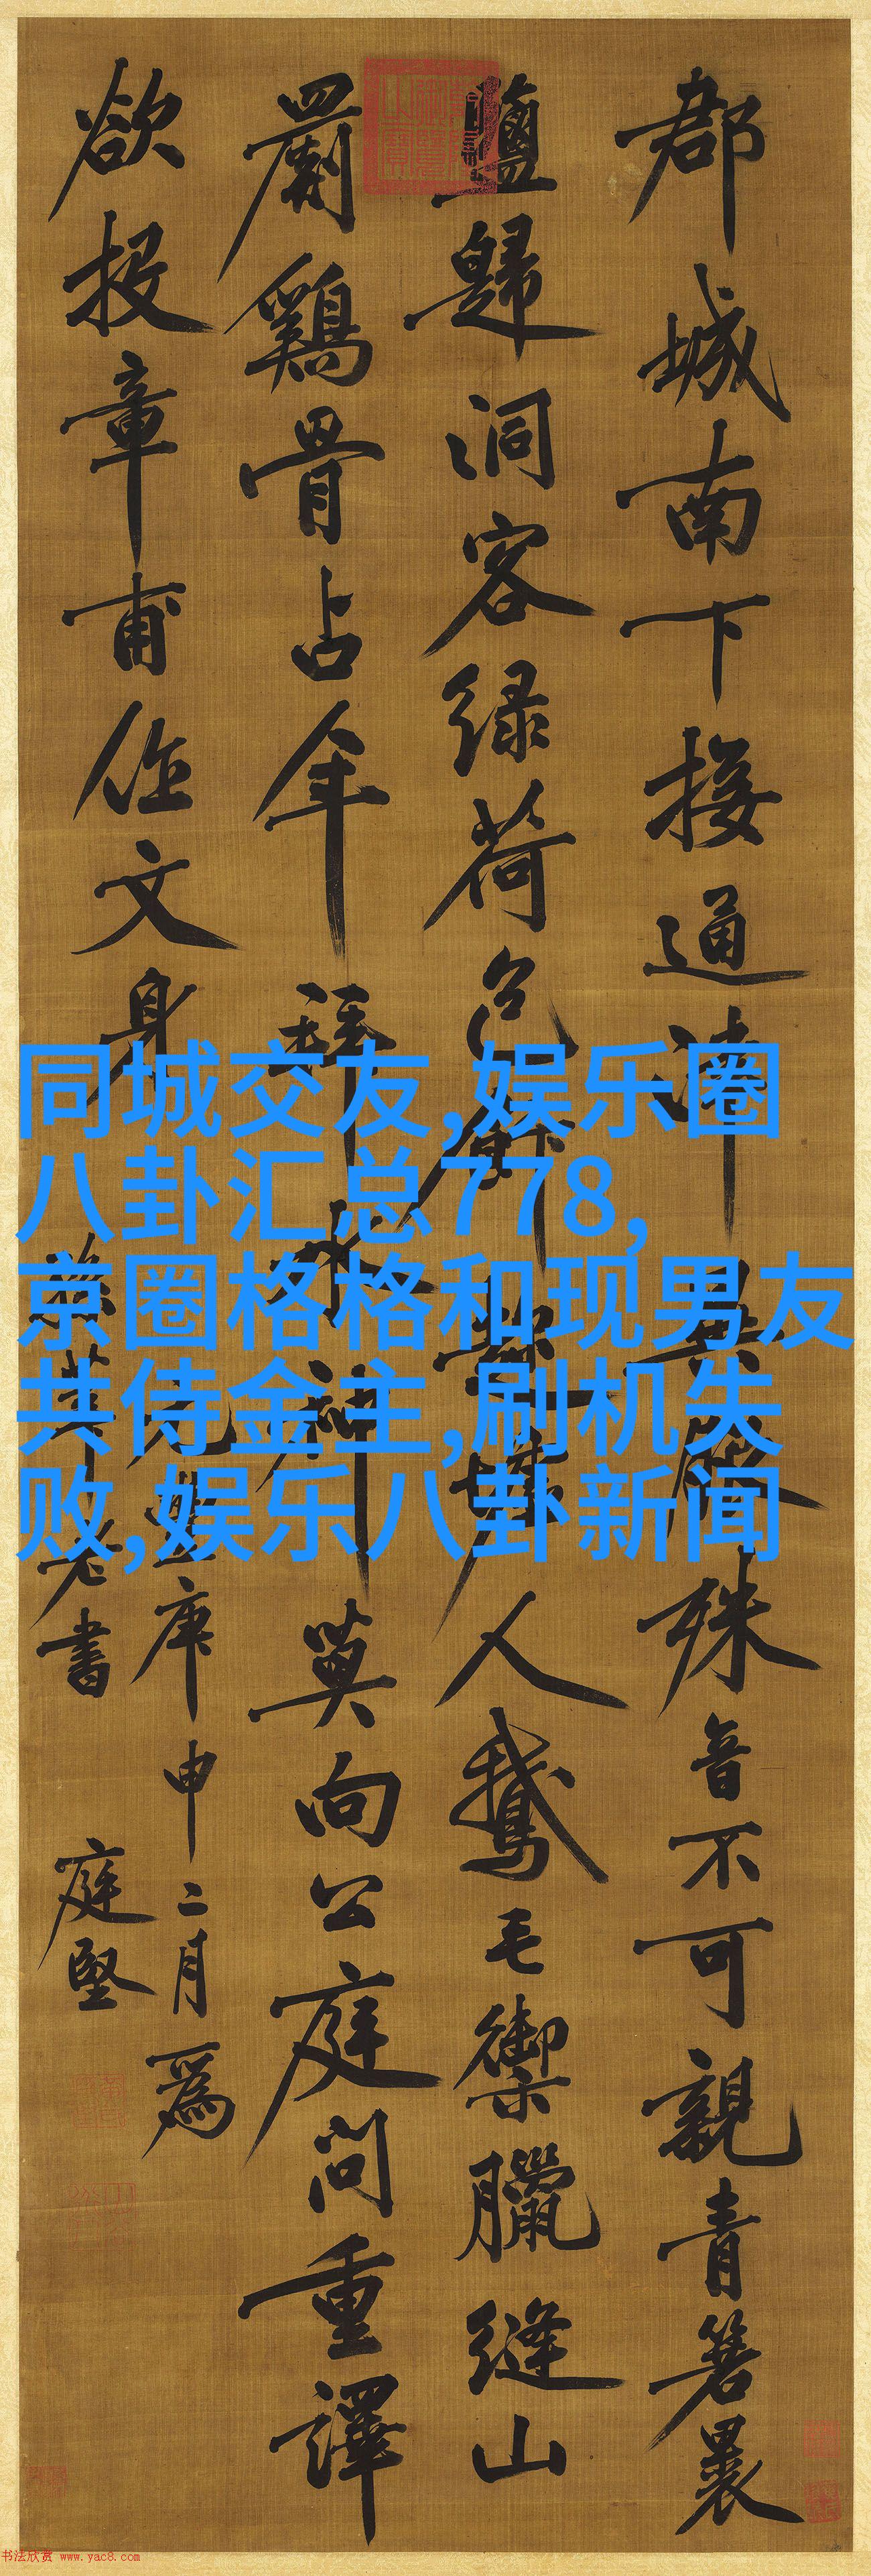 郡城南下接通津異服殊音不可親青箬裹
鹽歸洞客緑荷包飯趁墟人鵝毛禦臘縫山
罽鷄骨占年拜水神莫向公庭問重譯
欲投章甫作文身
元豐庚申二月為
莘老書 庭堅
同城交友,娱乐圈
八卦汇总778,
京圈格格和现男友
共侍金主,刷机失
败,娱乐八卦新闻
书法欣赏 www.yac8.com